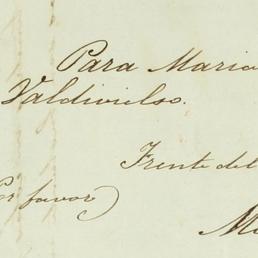 Para Maria
Valdivielso.
Frente del
Por favor)